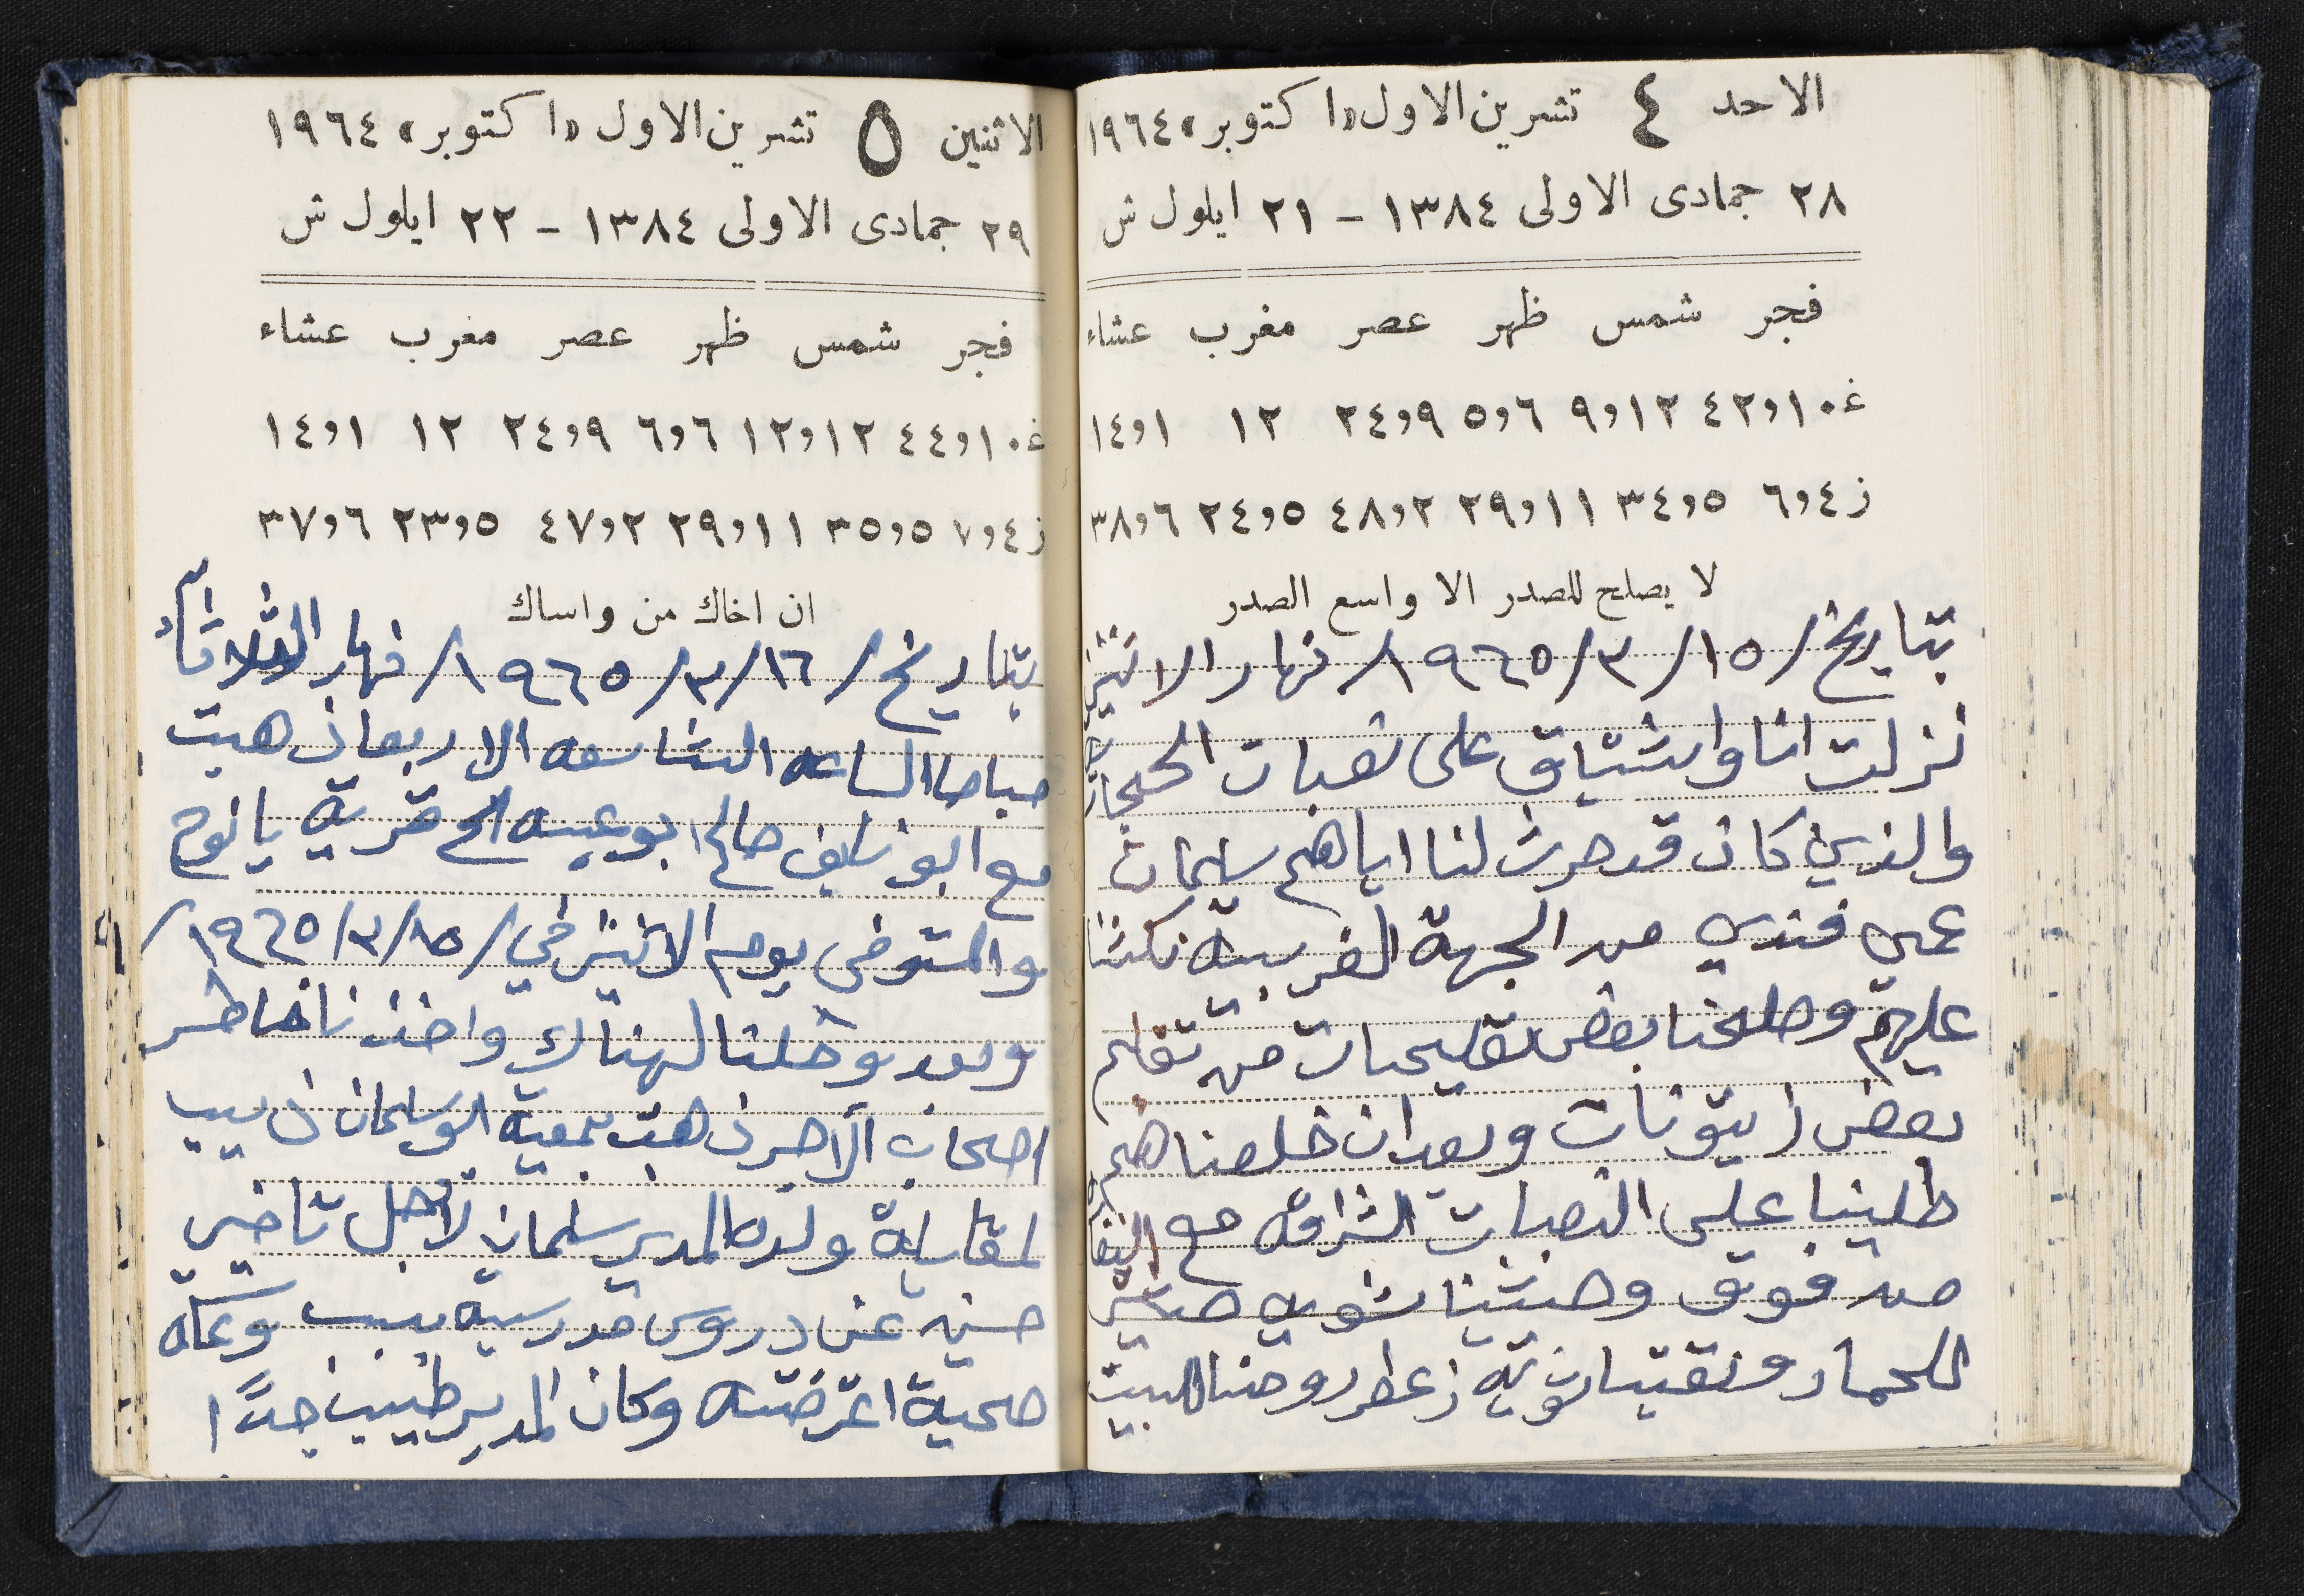 الاحد ٤ تشرين الاول «اكتوبر» ١٩٦٤
٢٨ جمادى الاولى ١٣٨٤ - ٢١ ايلول ش
فجر شمس ظهر عصر مغرب عشاء
غ ١٠و٤٢ ١٢و٩ ٦و٥ ٩و٢٤ ١٢ ١و١٤
ز ٤و٦ ٥و٣٤ ١١و٢٩ ٢و٤٨ ٥و٢٤ ٦و٣٨
لا يصلح للصدر الا واسع الصدر
بتاريخ /١٥/٣/١٩٦٥/ نهار الاثنين
نزلت انا واشتياق على نصبات الحجار
والذي كان قد حرث لنا اياهم سليمان
عمي فندي من الجهة الغربية نكشنا
عليهم وصلحنا بعض تقليمات من تقليم
بعض زيتونات وبعد ان خلصناهم
طلينا على النصبات الشراقه مع
من فوق وحشينا شويه حشيش
للحمار ونقينا شوية زعطر روحنا للبيت
الاثنين ٥ تشرين الاول «اكتوبر» ١٩٦٤
٢٩ جمادى الاولى ١٣٨٤ - ٢٢ ايلول ش
فجر شمس ظهر عصر مغرب عشاء
غ ١٠و٤٤ ١٢و١٢ ٦و٦ ٩و٢٤ ١٢ ١و١٤
ز ٤و٧ ٥و٣٥ ١١و٢٩ ٢و٤٧ ٥و٢٣ ٦و٣٧
ان اخاك من واساك
بتاريخ /١٦/٣/١٩٦٥/ نهار الثلاثاء
صباحا الساعه التاسعه الا ربعا ذهبت
مع ابو نايف صالح ابو عيسه الى قرية يانوح
والمتوفى يوم الاثنين في /١٥/٣/١٩٦٥/
وبعد وصلنا لهناك واخذنا خاطر
اصحاب الاجر ذهبت بمعية ابو سلمان ذيب
لمقابلة ولده المدير سلمان لاجل تاخير
حسنيه عن دروس مدرسية بسبب وعكه
صحية اعترضته وكان المدير طيب جدًا